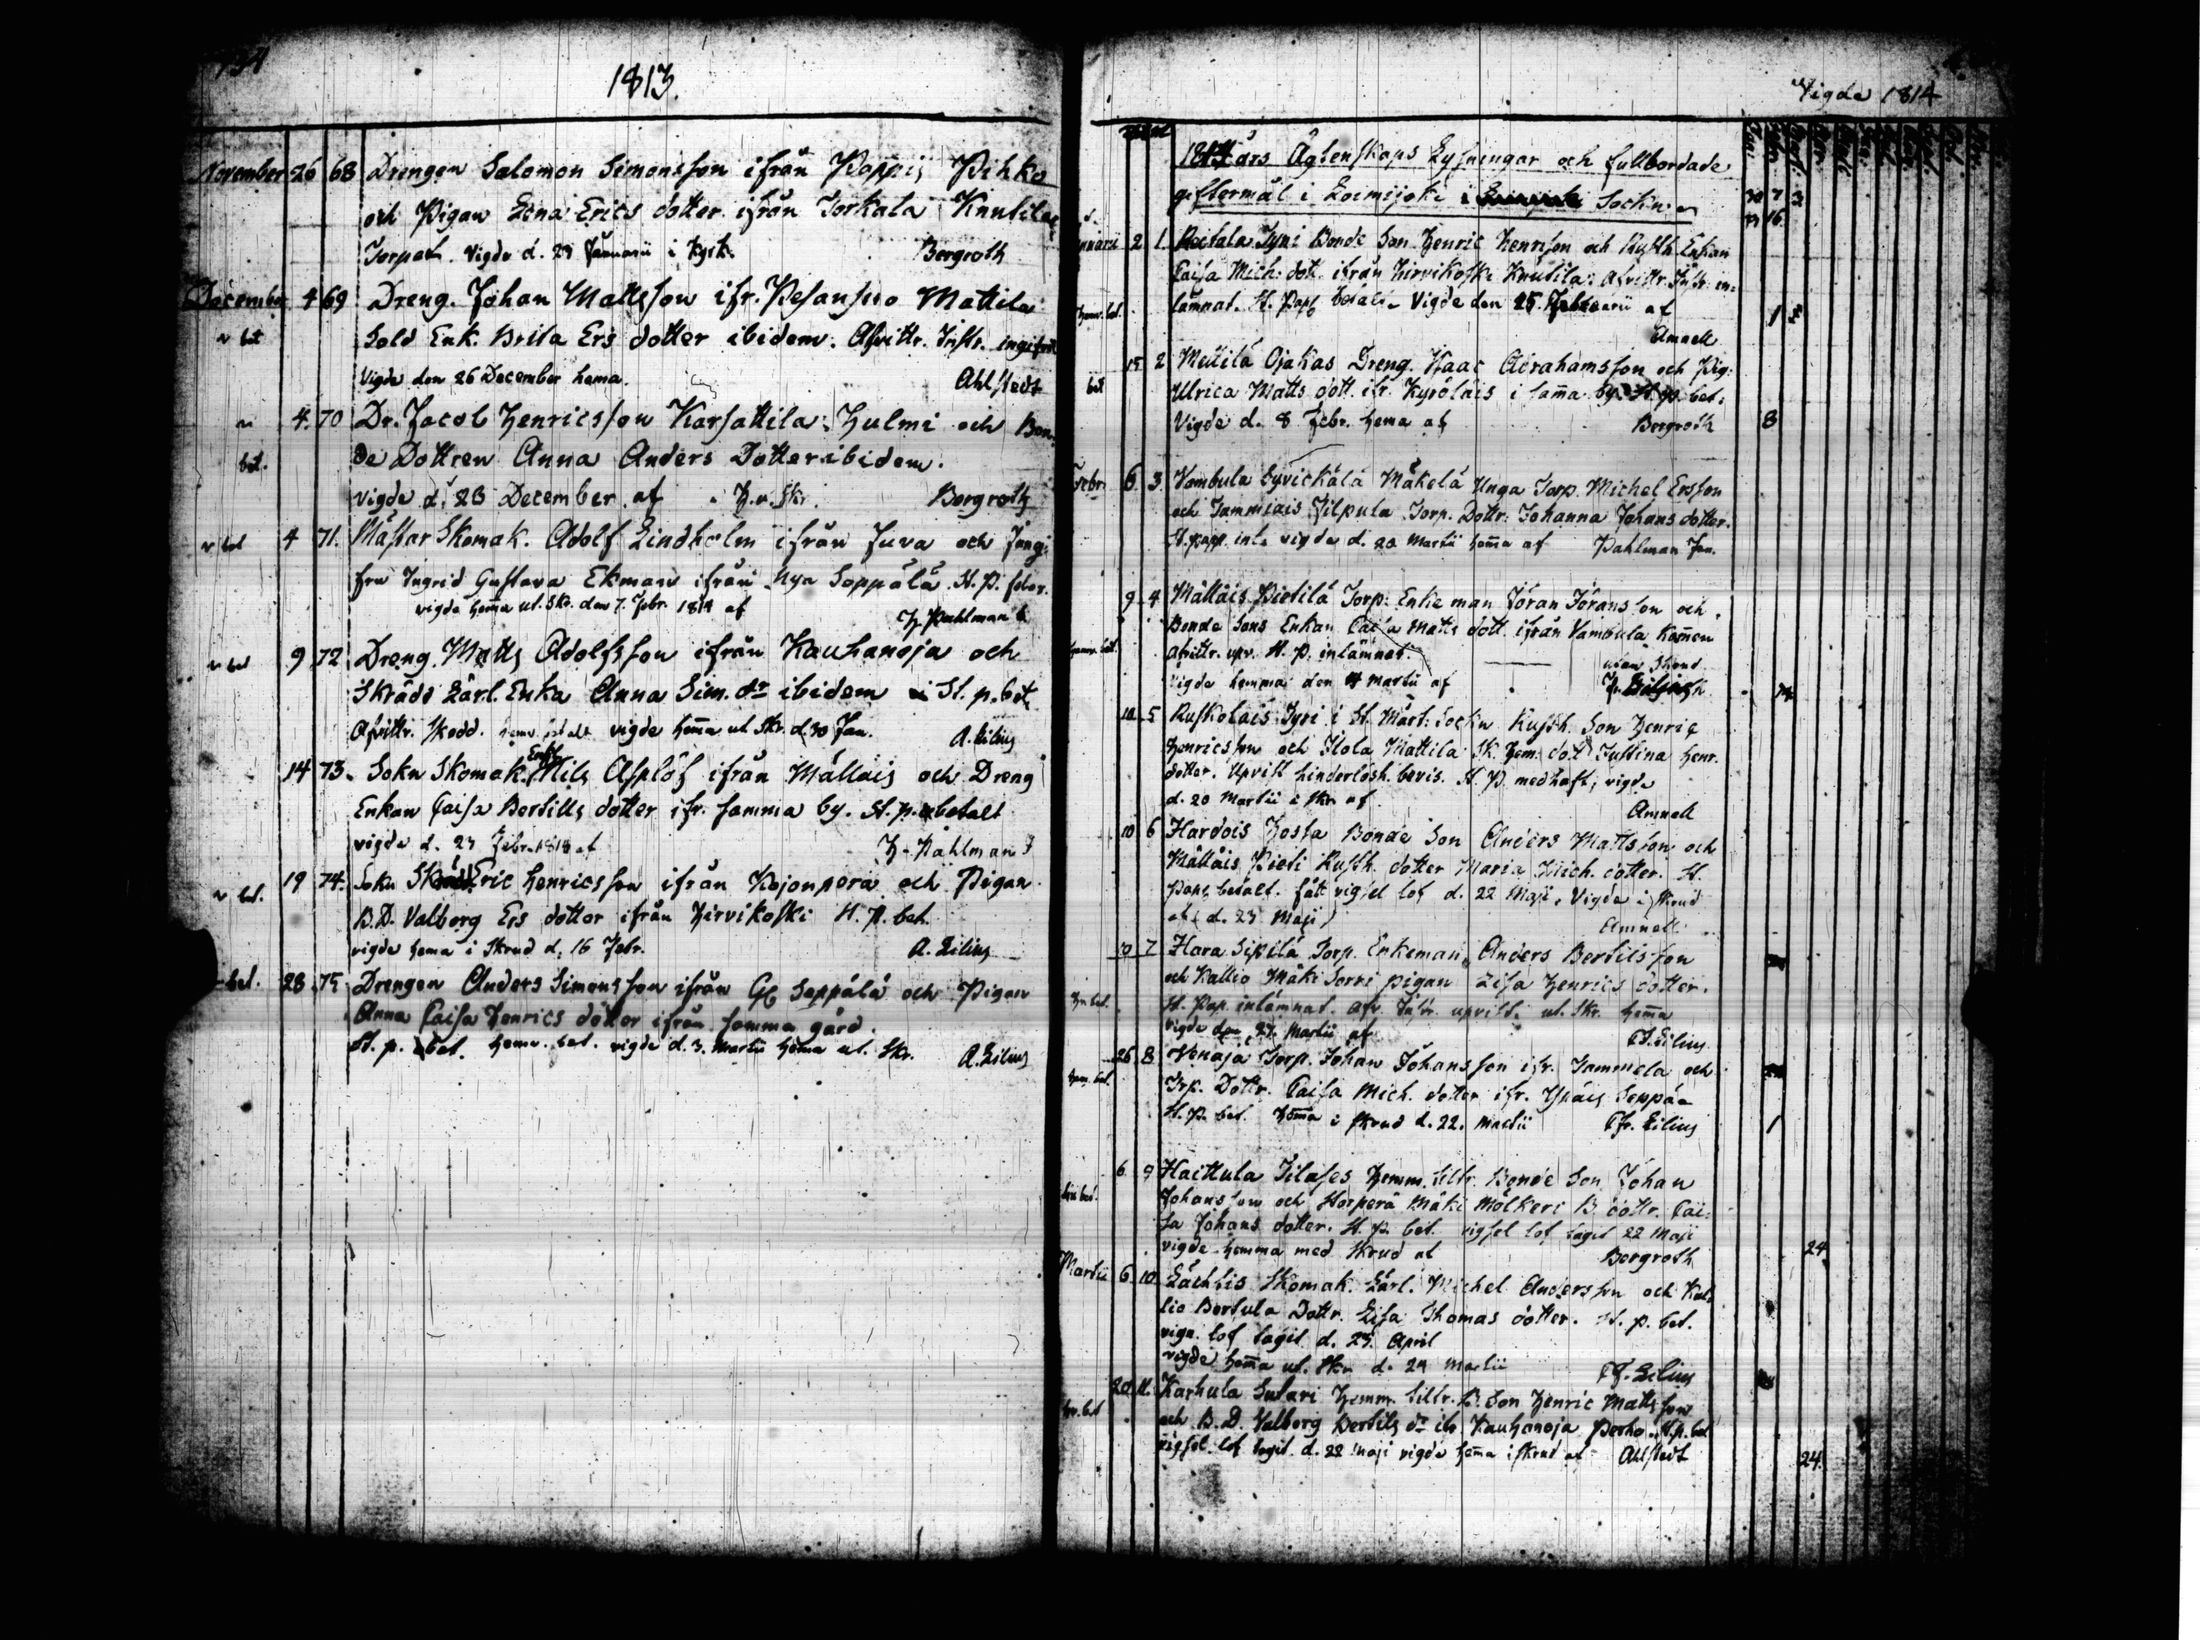 134
1813.
November 26 68 Drengen Salomon Simonsson ifrån Pappis Pihko
och Pigan Lena Erics dotter ifrån Torkala Knutila
Torpet. Vigde d. 23 Januarii i Kyrk. Bergroth
December 4 69 Dreng. Johan Mattsson ifr. Pesansuo Mattila
n bet Sold Enk. Brita Ers dotter ibidem. Afvittr. Instr. ingifvit
Vigde den 26 December hema. Ahlstedt
n 4. 70 Dr. Jacob Henricsson Karsattila Hulmi och Bon
bet. de Dottren Anna Anders Dotter ibidem.
vigde d. 26 December af H. u. Skr. Bergroth
n bet 4 71. Mästar Skomak. Adolf Lindholm ifrån Juva och Jung
fru Ingrid Gustava Ekman ifrån Nya Seppälä. St. P.
vigde hemma ut. Skr. den 7. Febr. 1814 af H. Pahlman
n bet 9 72 Dreng. Matts Adolfsson ifrån Kauhanoja och
Skrädd Lärl. Enka Anna Sim. dr ibidem St. p. bet
Afvittr. Skedd. vigde hema ut Skr. d. 30 Jan. A. Lilius
14 73. Sokn Skomak. Enkl. Nils Asplöf ifrån Mällais och Dreng
Enkan Caisa Bertills dotter ifr. samma by. St. p. betalt
vigde d. 27 Febr. 1818 af H. Pahlman
n bet. 19 74. Sokn Skräd. Eric Henricsson ifrån Kojonperä och Pigan
B. D. Valborg Ers dotter ifrån Hirvikoski St. P. bet.
vigde hema i Skrud d. 16 Febr. A. Lilius
bet. 28 75 Drengen Anders Simonsson ifrån Gl Seppälä och Pigan
Anna Caisa Henrics dotter ifrån samma gård.
St. p. bet. hemv. bet. vigde d. 3. Martii hema ut. Skr. A. Lilius
Vigde 1814
1814 års Ägtenskaps Lysningar och fullbordade
giftermål i Loimijoki Sockn
30 7 3
16
Januarii 2 1. Jyri Bonde Son Henric Henrsson och Rusth. Enkan
Caisa Mich. dott. ifrån Hirvikoski Knutila. Afvittr. Instr. in-
lämnat. St. Papp betalt. Vigde den 25. Februarii af
Amnell
15 2 Mettilä Ojakas Dreng. Isaac Abrahamsson och Pig.
bet Ulrica Matts dott. ifr. Kyröläis i samma by. St. p. bet.
Vigde d. 8 Febr. hema af Bergroth 8
Febr. 6 3. Vambula Syvickälä Mäkelä Unga Torp. Michel Ersson
och Tammiais Filpula Torp. Dottr. Johanna Johans dotter.
St. papp. inl. vigde d. 20 Martii hemma af Pahlman Jun.
9 4 Mällais Pietilä Torp. Enke man Jöran Jöransson och
Bonde Sons Enkan Caisa Matts dott. ifrån Vambula Komen
Afvittr. upv. St. P. inlämnat. utan Skrud
Vigde hemma den Martii af
10 5 Ruskolais Jyri i St. Mårt. Sockn Rusth. Son Henric
Henricsson och Ilola Mattila Sk. Hem. dot. Justina Henr.
dotter. Upvist hinderlösh. bevis. St. P. medhaft, vigde
d. 20 Martii i Skr. af
Amnell
10 6 Hardois Hossa Bonde Son Anders Mattsson och
Mälläis Pieti Rusth. dotter Maria Mich. dotter. St.
Papp. betalt. fått vigsel lof d. 22 Maji. Vigde i skrud
af d. 23 Maji
Amnell
10 7 Hara Sipilä Torp. Enkeman Anders Bertilsson
och Kallio Mäki Sorri pigan Lisa Henrics dotter.
St. Pap. inlämnat. afv. Instr. upvist. ut. Skr. hemma
vigde den 27. Martii af F. Lilius
26 8. Venäjä Torp. Johan Johansson ifr. Tammela och
Trp. Dottr. Caisa Mich. dotter ifr. Ypäis Seppä
St. P. bet. hemma i Skrud d. 22. Martii Fr. Lilius
6 9 Haittula Tilases Hemm. tilltr. Bonde Son Johan
Johansson och Horperä Mäki Mölkeri B dottr. Cai-
sa Johans dotter. St. P. bet. vigsel lof taget 22 Maji
vigde hemma med skrud af Bergroth 24
Martii 6 10 Lächtis Skomak. Lärl. Michel Andersson och Kal-
lio Bertula Dottr. Lisa Thomas dotter. St. p. bet.
vign. lof tagit d. 23. April
vigde hema ut. Skr. d. 24 Martii F. Lilius
20 11. Karhula Sutari Hemm. tilltr. B. Son Henric Mattsson
och B. D. Valborg Bertils dr ifr Kauhanoja Perho St. p. bet
vigsel lof tagit d. 22 Maji vigde hema i skrud af Ahlstedt 24